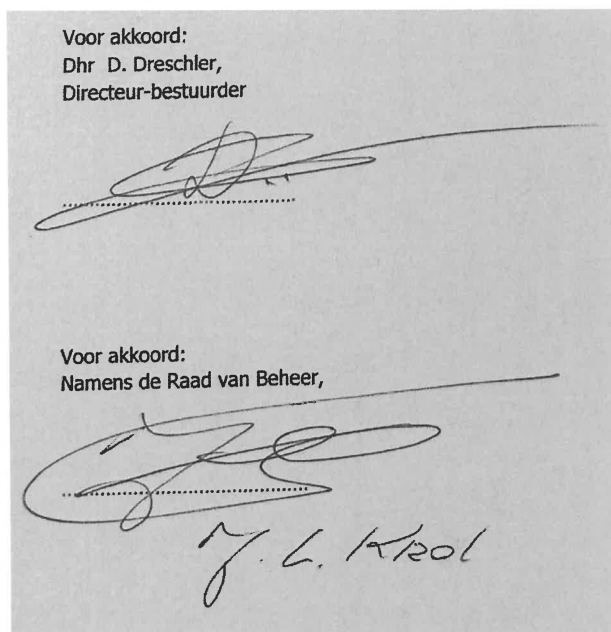 Voor akkoord:
Dhr D. Dreschler,
Directeur-bestuurder
Voor akkoord:
Namens de Raad van Beheer,
J. L. Krol